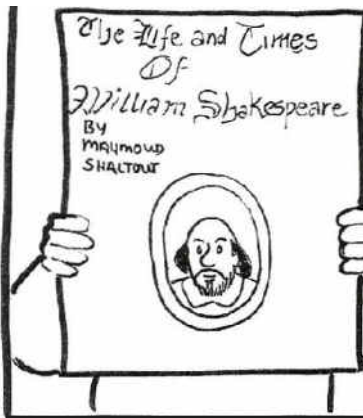 The Life and Times
Of
William Shakespeare
BY
MAHMOUD
SHALTOUT